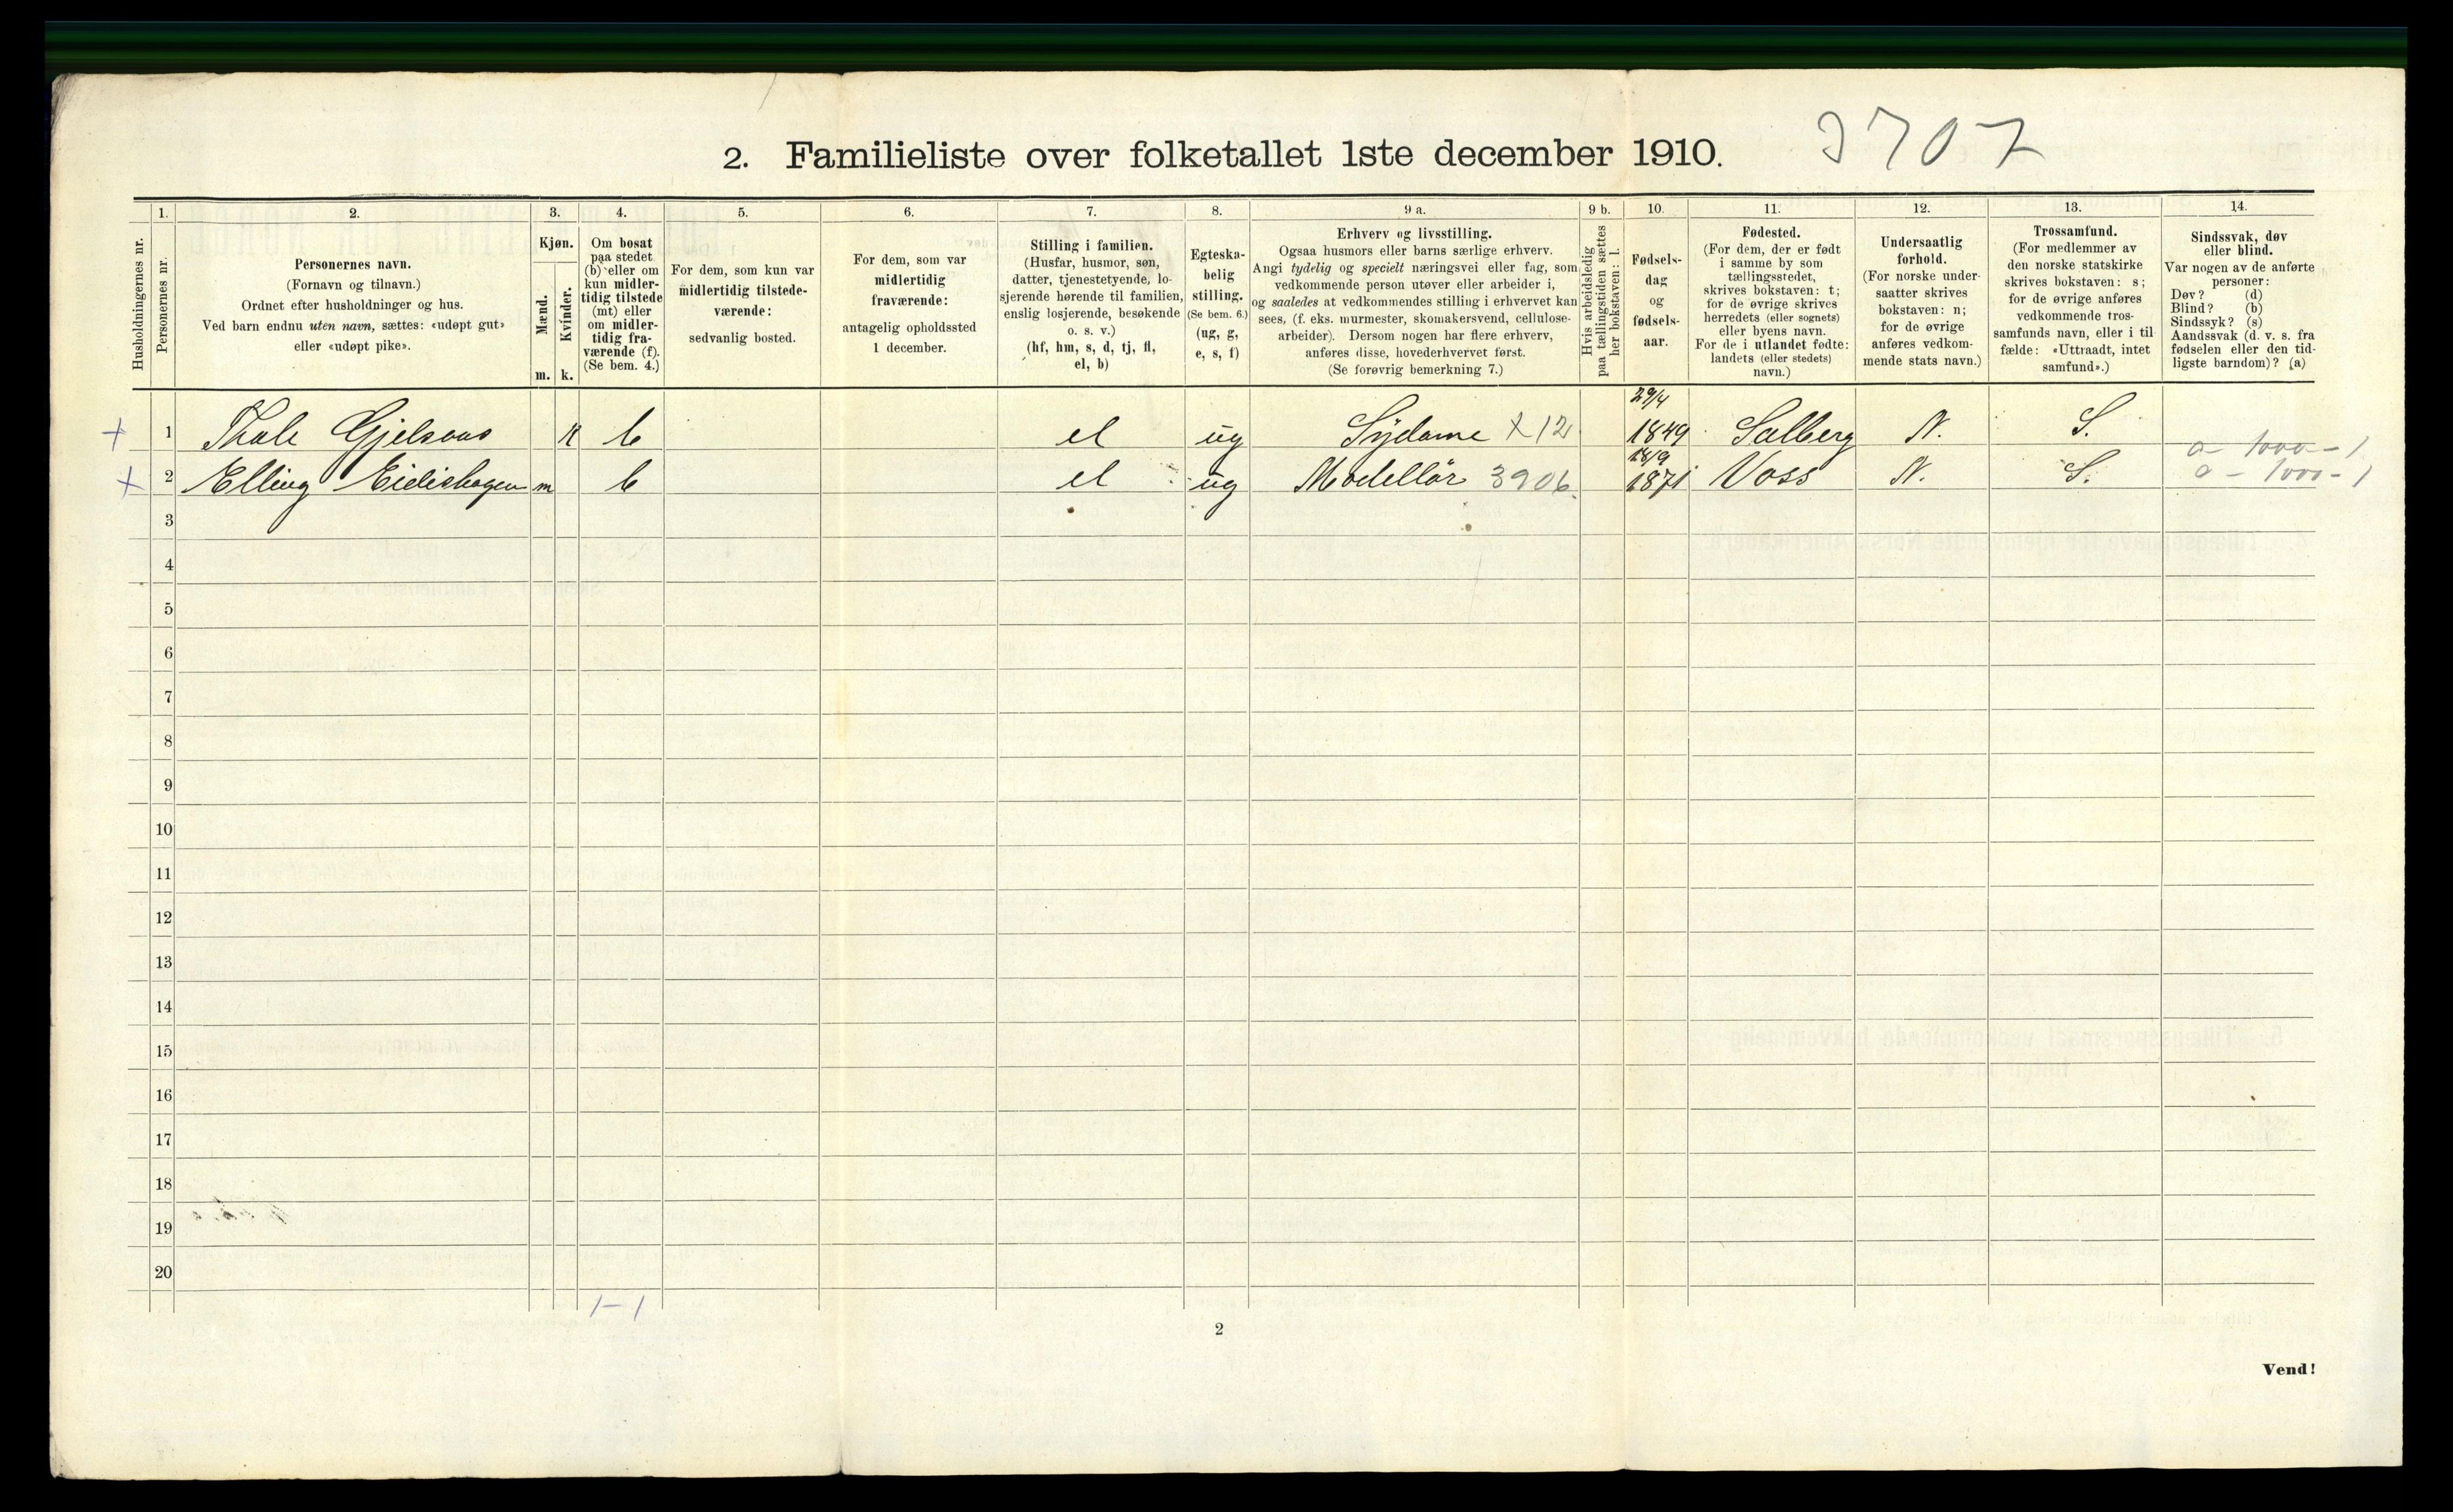 2. Familieliste over folketallet 1ste december 1910. 3707
1. 2. 3. 4. 5. 6. 7. 8. 9 a. 9 b. 10. 11. 12. 13. 14.
Husholdningernes nr.
Personernes nr.
Personernes navn.
(Fornavn og tilnavn.)
Ordnet efter husholdninger og hus.
Ved barn endnu uten navn, sættes: «udøpt gut»
eller «udøpt pike».
Kjøn.
Mænd.
Kvinder.
m. k.
Om bosat
paa stedet
(b) eller om
kun midler-
tidig tilstede
(mt) eller
om midler-
tidig fra-
værende (f).
(Se bem. 4.)
For dem, som kun var
midlertidig tilstede-
værende:
sedvanlig bosted.
For dem, som var
midlertidig
fraværende:
antagelig opholdssted
1 december.
Stilling i familien.
(Husfar, husmor, søn,
datter, tjenestetyende, lo-
sjerende hørende til familien,
enslig losjerende, besøkende
o. s. v.)
(hf, hm, s, d, tj, fl,
el, b)
Egteska-
belig
stilling.
(Se bem. 6.)
(ug, g,
e, s, f)
Erhverv og livsstilling.
Ogsaa husmors eller barns særlige erhverv.
Angi tydelig og specielt næringsvei eller fag, som
vedkommende person utøver eller arbeider i,
og saaledes at vedkommendes stilling i erhvervet kan
sees, (f. eks. murmester, skomakersvend, cellulose-
arbeider). Dersom nogen har flere erhverv,
anføres disse, hovederhvervet først.
(Se forøvrig bemerkning 7.)
Hvis arbeidsledig
paa tællingstiden sættes
her bokstaven: l.
Fødsels-
dag
og
fødsels-
aar.
Fødested.
(For dem, der er født
i samme by som
tællingsstedet,
skrives bokstaven: t;
for de øvrige skrives
herredets (eller sognets)
eller byens navn.
For de i utlandet fødte:
landets (eller stedets)
navn.)
Undersaatlig
forhold.
(For norske under-
saatter skrives
bokstaven: n;
for de øvrige
anføres vedkom-
mende stats navn.)
Trossamfund.
(For medlemmer av
den norske statskirke
skrives bokstaven: s;
for de øvrige anføres
vedkommende tros-
samfunds navn, eller i til-
fælde: «Uttraadt, intet
samfund».)
Sindssvak, døv
eller blind.
Var nogen av de anførte
personer:
Døv? (d)
Blind? (b)
Sindssyk? (s)
Aandssvak (d. v. s. fra
fødselen eller den tid-
ligste barndom)? (a)
29/4
1 Thale k b el ug Sydame x 12 1849 Salberg N. S. 0 - 1000 - 1
18/9
2 Elling Eidishagen m b el ug Modellör 3906 1871 Voss N. S. 0 - 1000 - 1
3
4
5
6
7
8
9
10
11
12
13
14
15
16
17
18
19
20
1 - 1
2
Vend!